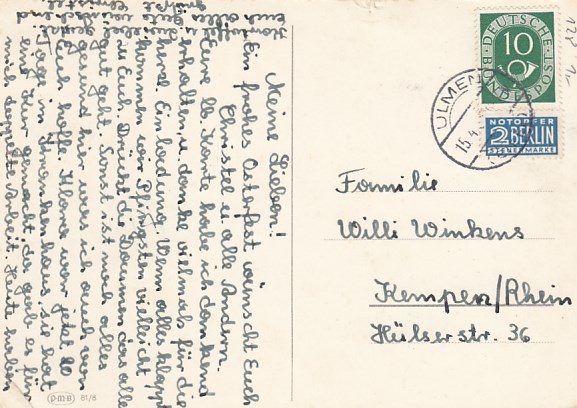 Meine Lieben!
Ein frohes Osterfest wünscht Euch
Christel u. alle Andern.
Eure lb. Karte habe ich dankend
erhalten u. danke vielmals für die
Einladung. Wenn alles klappt
kommen wir Pfingsten vielleicht
zu Euch. Drückt die Daumen das alles
gut geht. Sonst ist noch alles
gesund hier, was ich auch von
Euch hoffe. Klara war jetzt 10
Tage im Krankenhaus. Sie hat
eine Kur gemacht, da gab es für
mich doppelte Arbeit. Heute haben
DEUTSCHE
BUNDESPOST
10
NOTOPFER
2 BERLIN
STEUERMARKE
ULMEN
15.4.
Familie
Willi Winkens
Kempen/Rhein
Hülserstr. 36
PMB 81/8